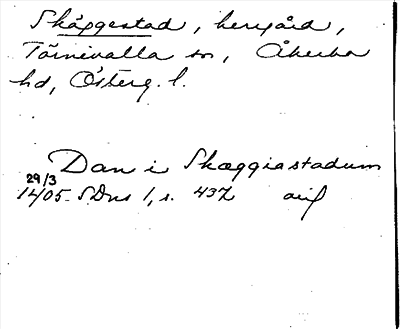 Skäggestad, herrgård,
Törnevalla sn, Åkerbo
hd, Österg. l.
Dan i Skæggiastadum
29/3
1405 SDns 1, s. 437 avf